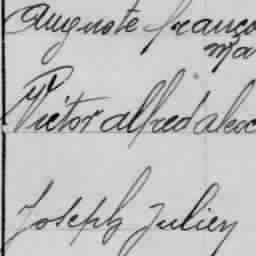 Auguste franço
ma
Victor alfred alex
Joseph Julien